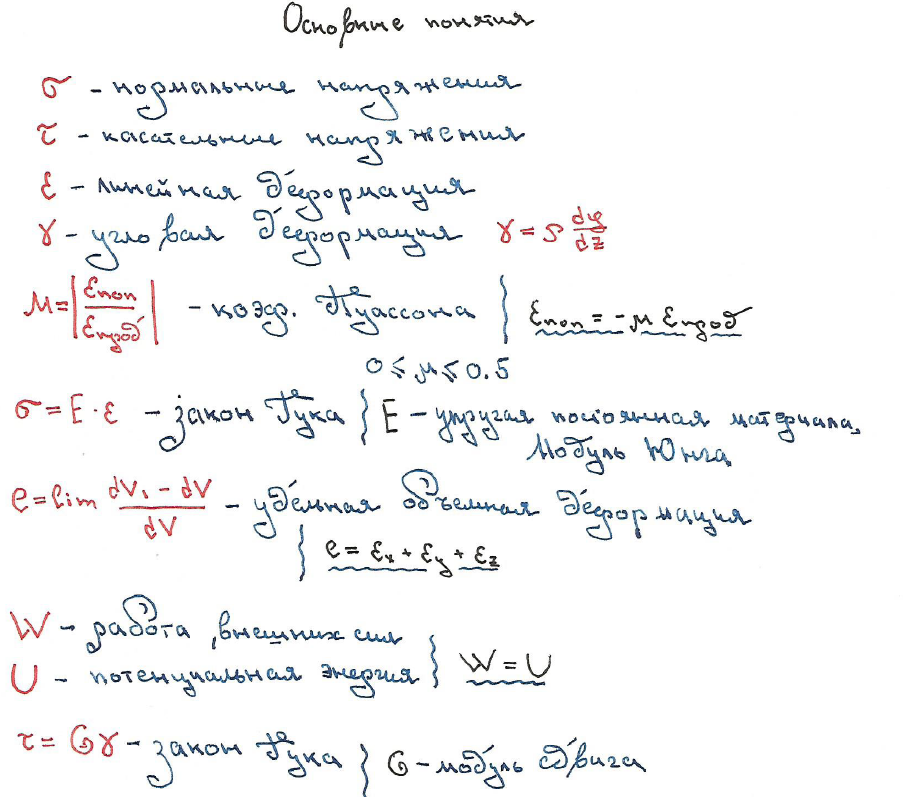 Основные понятия
σ - нормальные напряжения
τ - касательные напряжения
ε - линейная деформация
γ - угловая деформация γ = ρ dφ/dz
μ = |εпоп/εпрод| - коэф. Пуассона } εпоп = -μ εпрод
0 ≤ μ ≤ 0.5
σ = E · ε - закон Гука } E - упругая постоянная материала,
Модуль Юнга
e = lim dV₁ - dV/dV - удельная объемная деформация
} e = εx + εy + εz
W - работа внешних сил
U - потенциальная энергия } W = U
τ = Gγ - закон Гука } G - модуль сдвига